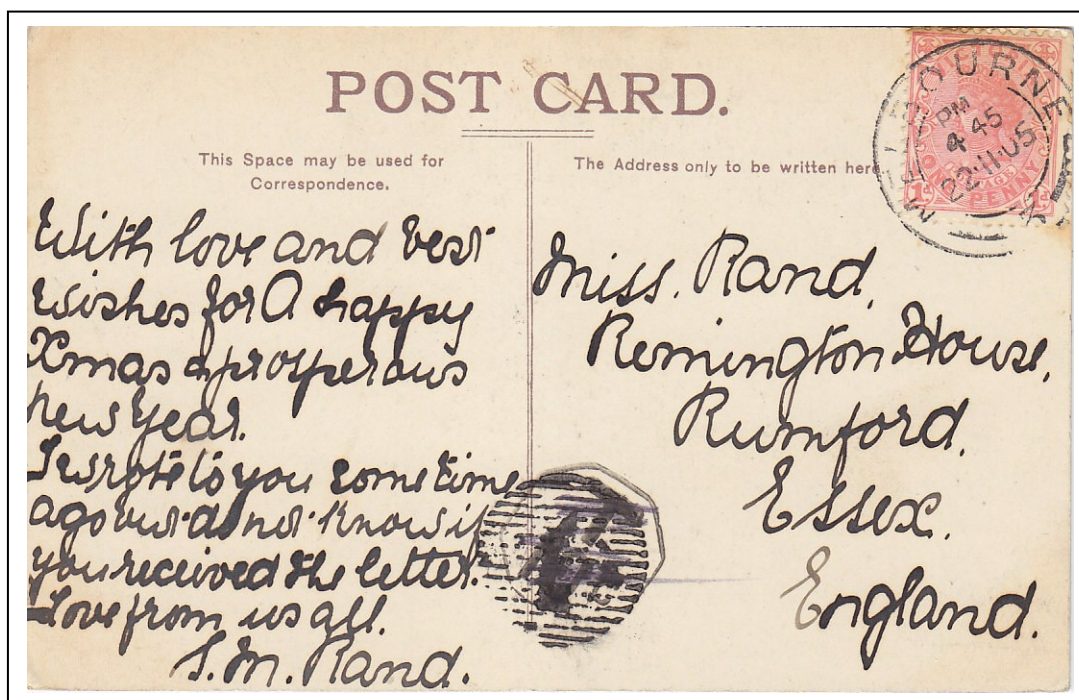 POST CARD.
This Space may be used for
Correspondence.
The Address only to be written here.
MELBOURNE
PM
4 45
22·11·05
VICTORIA
ONE PENNY
With love and best
wishes for A happy
Xmas & prosperous
new year.
I wrote to you some time
ago but do not know if
you received the letter.
Love from us all.
S.M. Rand.
Miss. Rand,
Remington House,
Rumford,
Essex.
England.